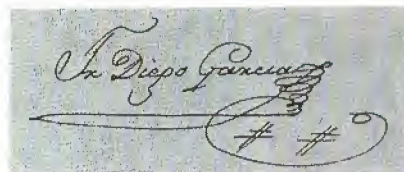 Fr Diego Garcia